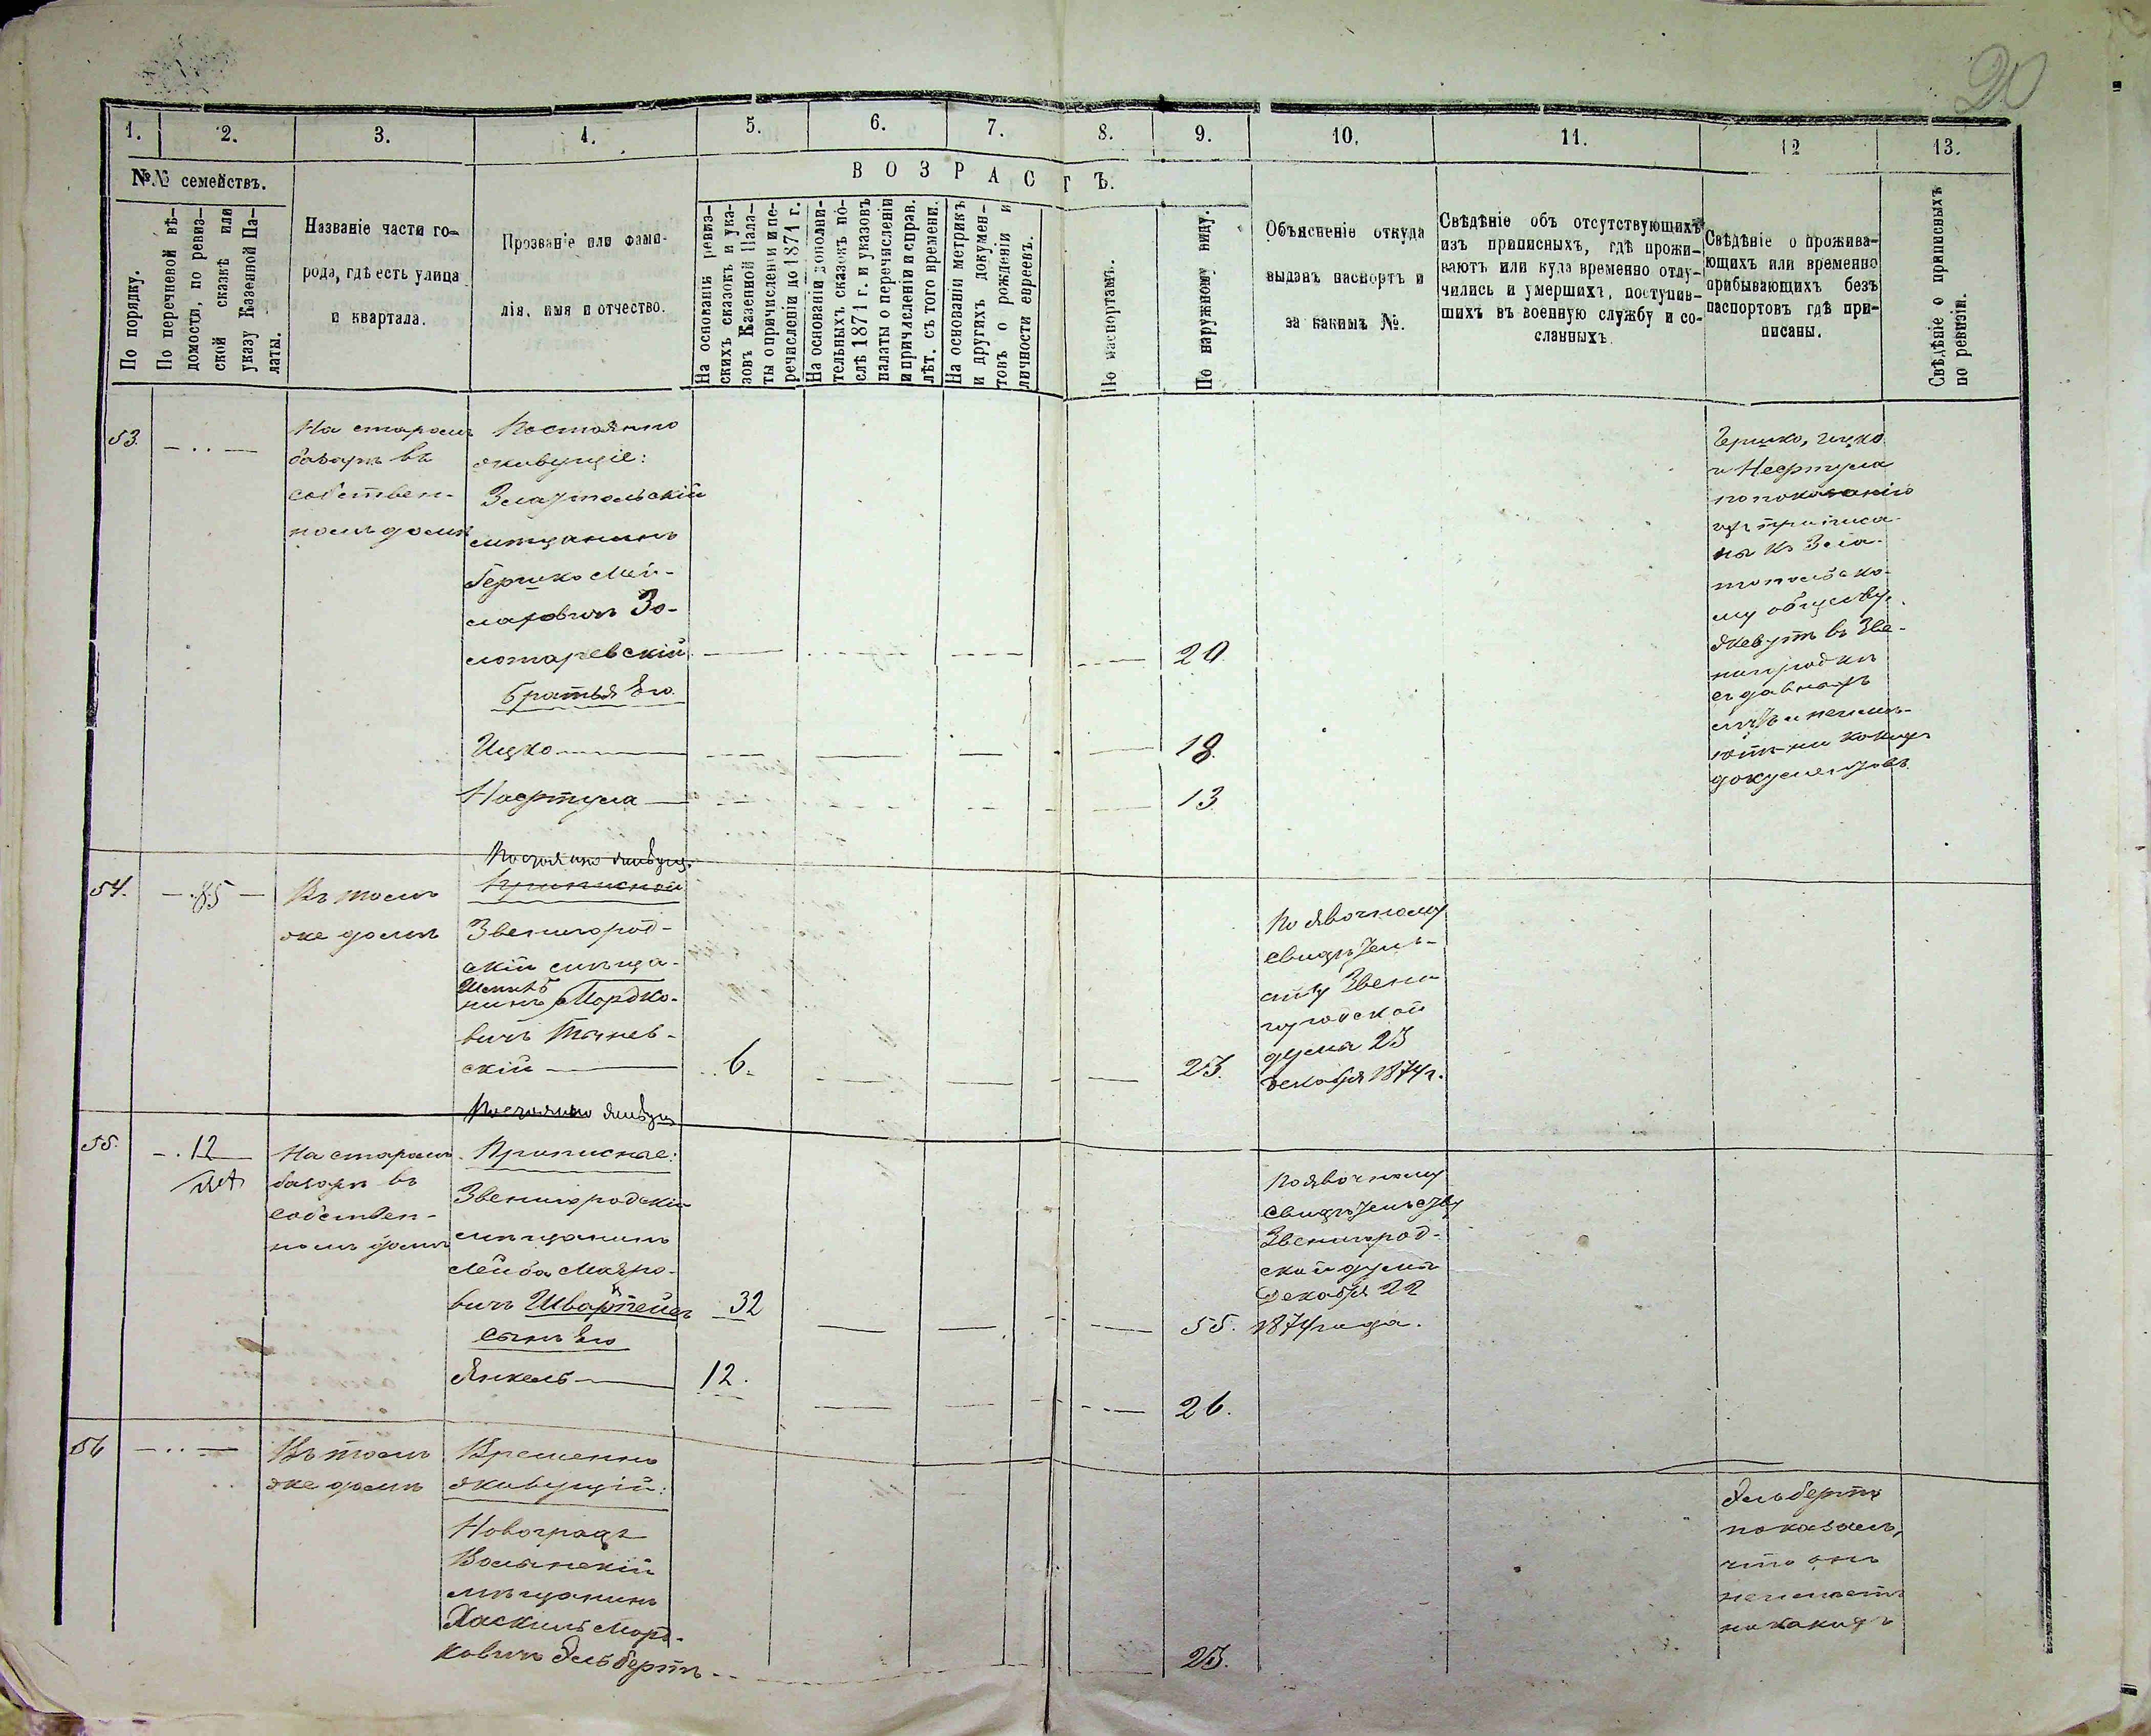 20
1.
2.
3.
4.
5.
6.
7.
8.
9.
10.
11.
12
13.
№№ семействъ.
По порядку.
По перечневой вѣ-
домости, по ревиз-
ской сказкѣ или
указу Казенной Па-
латы.
Названіе части го-
рода, гдѣ есть улица
и квартала.
Прозваніе или фами-
лія, имя и отчество.
ВОЗРАСТЪ.
На основаніи ревиз-
скихъ сказокъ и ука-
зовъ Казенной Пала-
ты о причисленіи и пе-
речисленіи до 1871 г.
На основаніи дополни-
тельныхъ сказокъ по-
слѣ 1871 г. и указовъ
палаты о перечисленіи
и причисленіи и справ.
лѣт. съ того времени.
На основаніи метрикъ
и другихъ докумен-
товъ о рожденіи и
личности евреевъ.
По паспортамъ.
По наружному виду.
Объясненіе откуда
выданъ паспортъ и
за какимъ №.
Свѣдѣніе объ отсутствующихъ
изъ приписныхъ, гдѣ прожи-
ваютъ или куда временно отлу-
чились и умершихъ, поступив-
шихъ въ военную службу и со-
сланныхъ.
Свѣдѣніе о прожива-
ющихъ или временно
прибывающихъ безъ
паспортовъ гдѣ при-
писаны.
Свѣдѣніе о приписныхъ
по ревизіи.
53.
На старомъ
базарѣ въ
собствен-
номъ домѣ
Постоянно
живущіе:
Златопольскій
мѣщанинъ
Гершко Мей-
Зо-
лотаревскій
20.
братья Его
Ицко
18.
Нафтула
13
Гершко, Ицко
и Нафтула
по показанію
ихъ приписа-
ны къ Зла-
топольско-
му обществу,
живутъ въ Зве-
нигородкѣ
съ давнихъ
лѣтъ и неимѣ-
ютъ ни какихъ
документовъ.
54.
85
Въ томъ
же домѣ
Постоянно живущ.
Приписной
Звенигород-
скій мѣща-
нинъ Мордко-
вичъ
скій
6.
23.
По явочному
свидѣтель-
ству Звени-
городской
думы 23
декабря 1874 г.
55.
12
На старомъ
базарѣ въ
собствен-
номъ домѣ
Постоянно живущ
Приписные:
Звенигородскій
мѣщанинъ
Лейба Маяро-
вичъ
32
55.
сынъ Его
Янкель
12.
26.
По явочному
свидѣтельству
Звенигород-
ской думы
Декабря 22
1874 года.
56
Въ томъ
же домѣ
Временно
живущій:
Новоградъ
Волынскій
мѣщанинъ
Хаскиль Морд-
ковичъ Эльбертъ
23.
Эльбертъ
показалъ,
что онъ
неимѣетъ
никакихъ